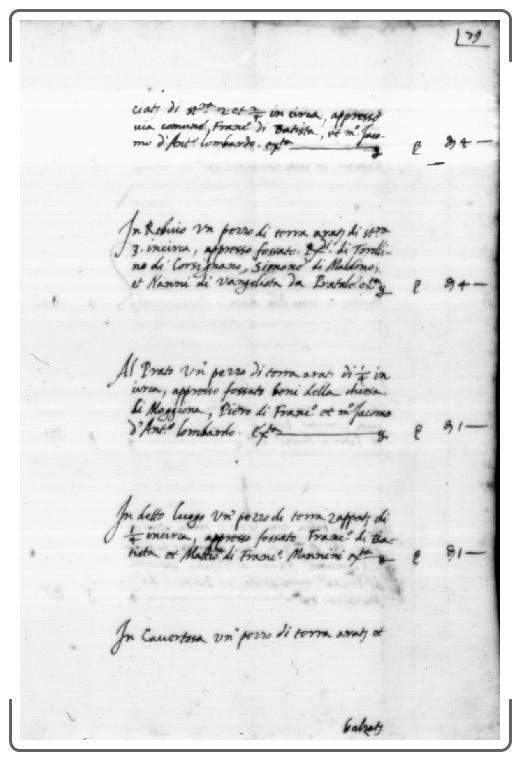 79
ciatj di st.re 2 et 3/4 in circa, appresso
via comune, Franc.o di Batista, et m.o Jaco-
mo d'Ant.o lombardo. ex.ta
4 —
In Rebuio un pezzo di terra aratj di stra
3. incirca, appresso fossato. di Torelli-
no di Corsignano, Simone di
et Nanni di Vangelista da Pratale.
4 —
Al Prato un.o pezzo di terra arat. di 1/4 in
circa, appresso fossato beni della chiesa
di Moggiona, Piero di Franc.o et m.o Jacomo
d'Ant.o lombardo. ex.ta
1 —
In detto luogo un.o pezzo di terra zappatj di
1/4 incirca, appresso fossato Franc.o di Ba-
tista et Matteo di Franc.o Mannini ex.ta
1 —
In Cavertosa un.o pezzo di terra aratj et
balzatj